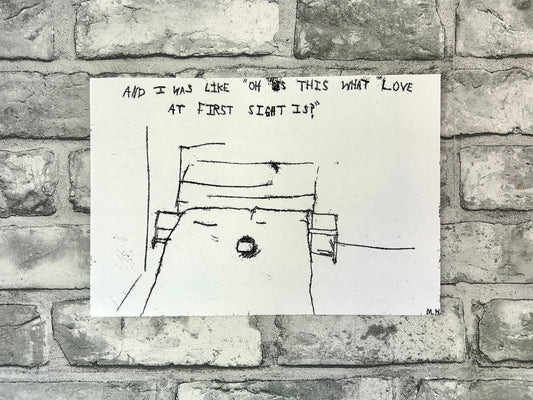 AND I WAS LIKE "OH IS THIS WHAT LOVE
AT FIRST SIGHT IS?"
M.H